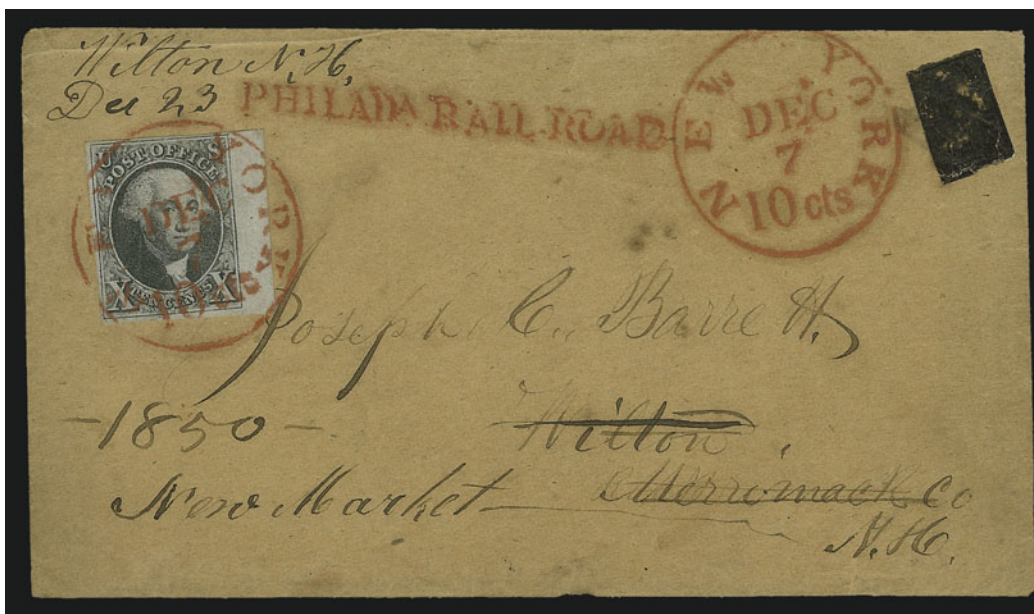 Wilton N.H,
Dec 23
PHILADA RAIL-ROAD
NEW YORK
DEC
7
10 cts
U S
POST OFFICE
X TEN CENTS X
NEW YORK
DEC
7
10 cts
Joseph C. Barrett.
Wilton,
-1850-
New Market
Merrimack Co
N.H.